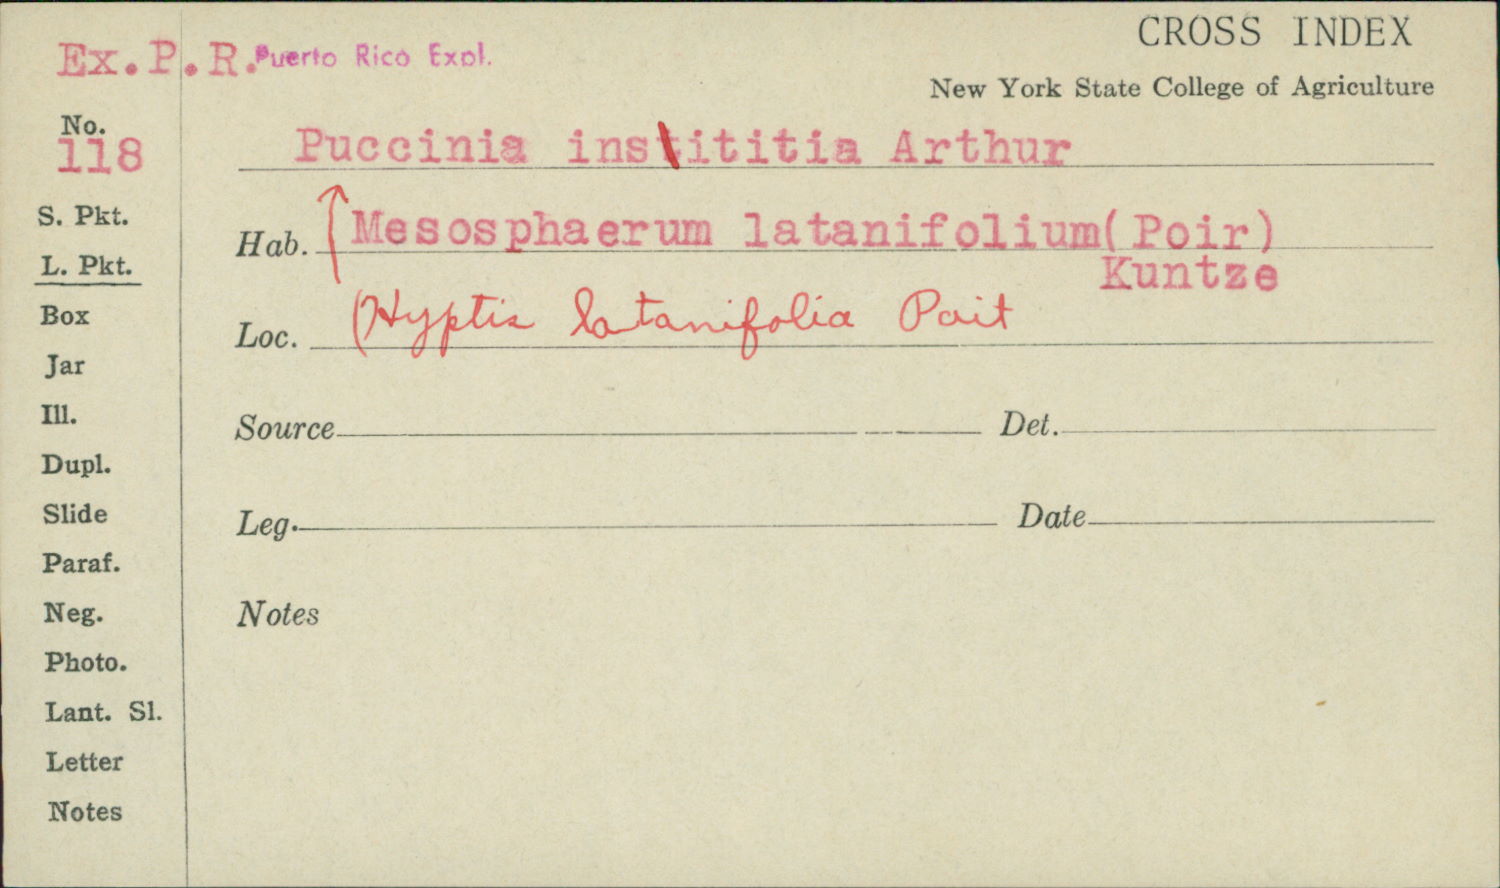 CROSS INDEX
Ex. P. R. Puerto Rico Expl.
New York State College of Agriculture
No.
118
Puccinia instititia Arthur
S. Pkt.
Hab. Mesosphaerum latanifolium (Poir)
Kuntze
L. Pkt.
Box
Loc. (Hyptis latanifolia Poit
Jar
Ill.
Source Det.
Dupl.
Slide
Leg. Date
Paraf.
Neg.
Notes
Photo.
Lant. Sl.
Letter
Notes